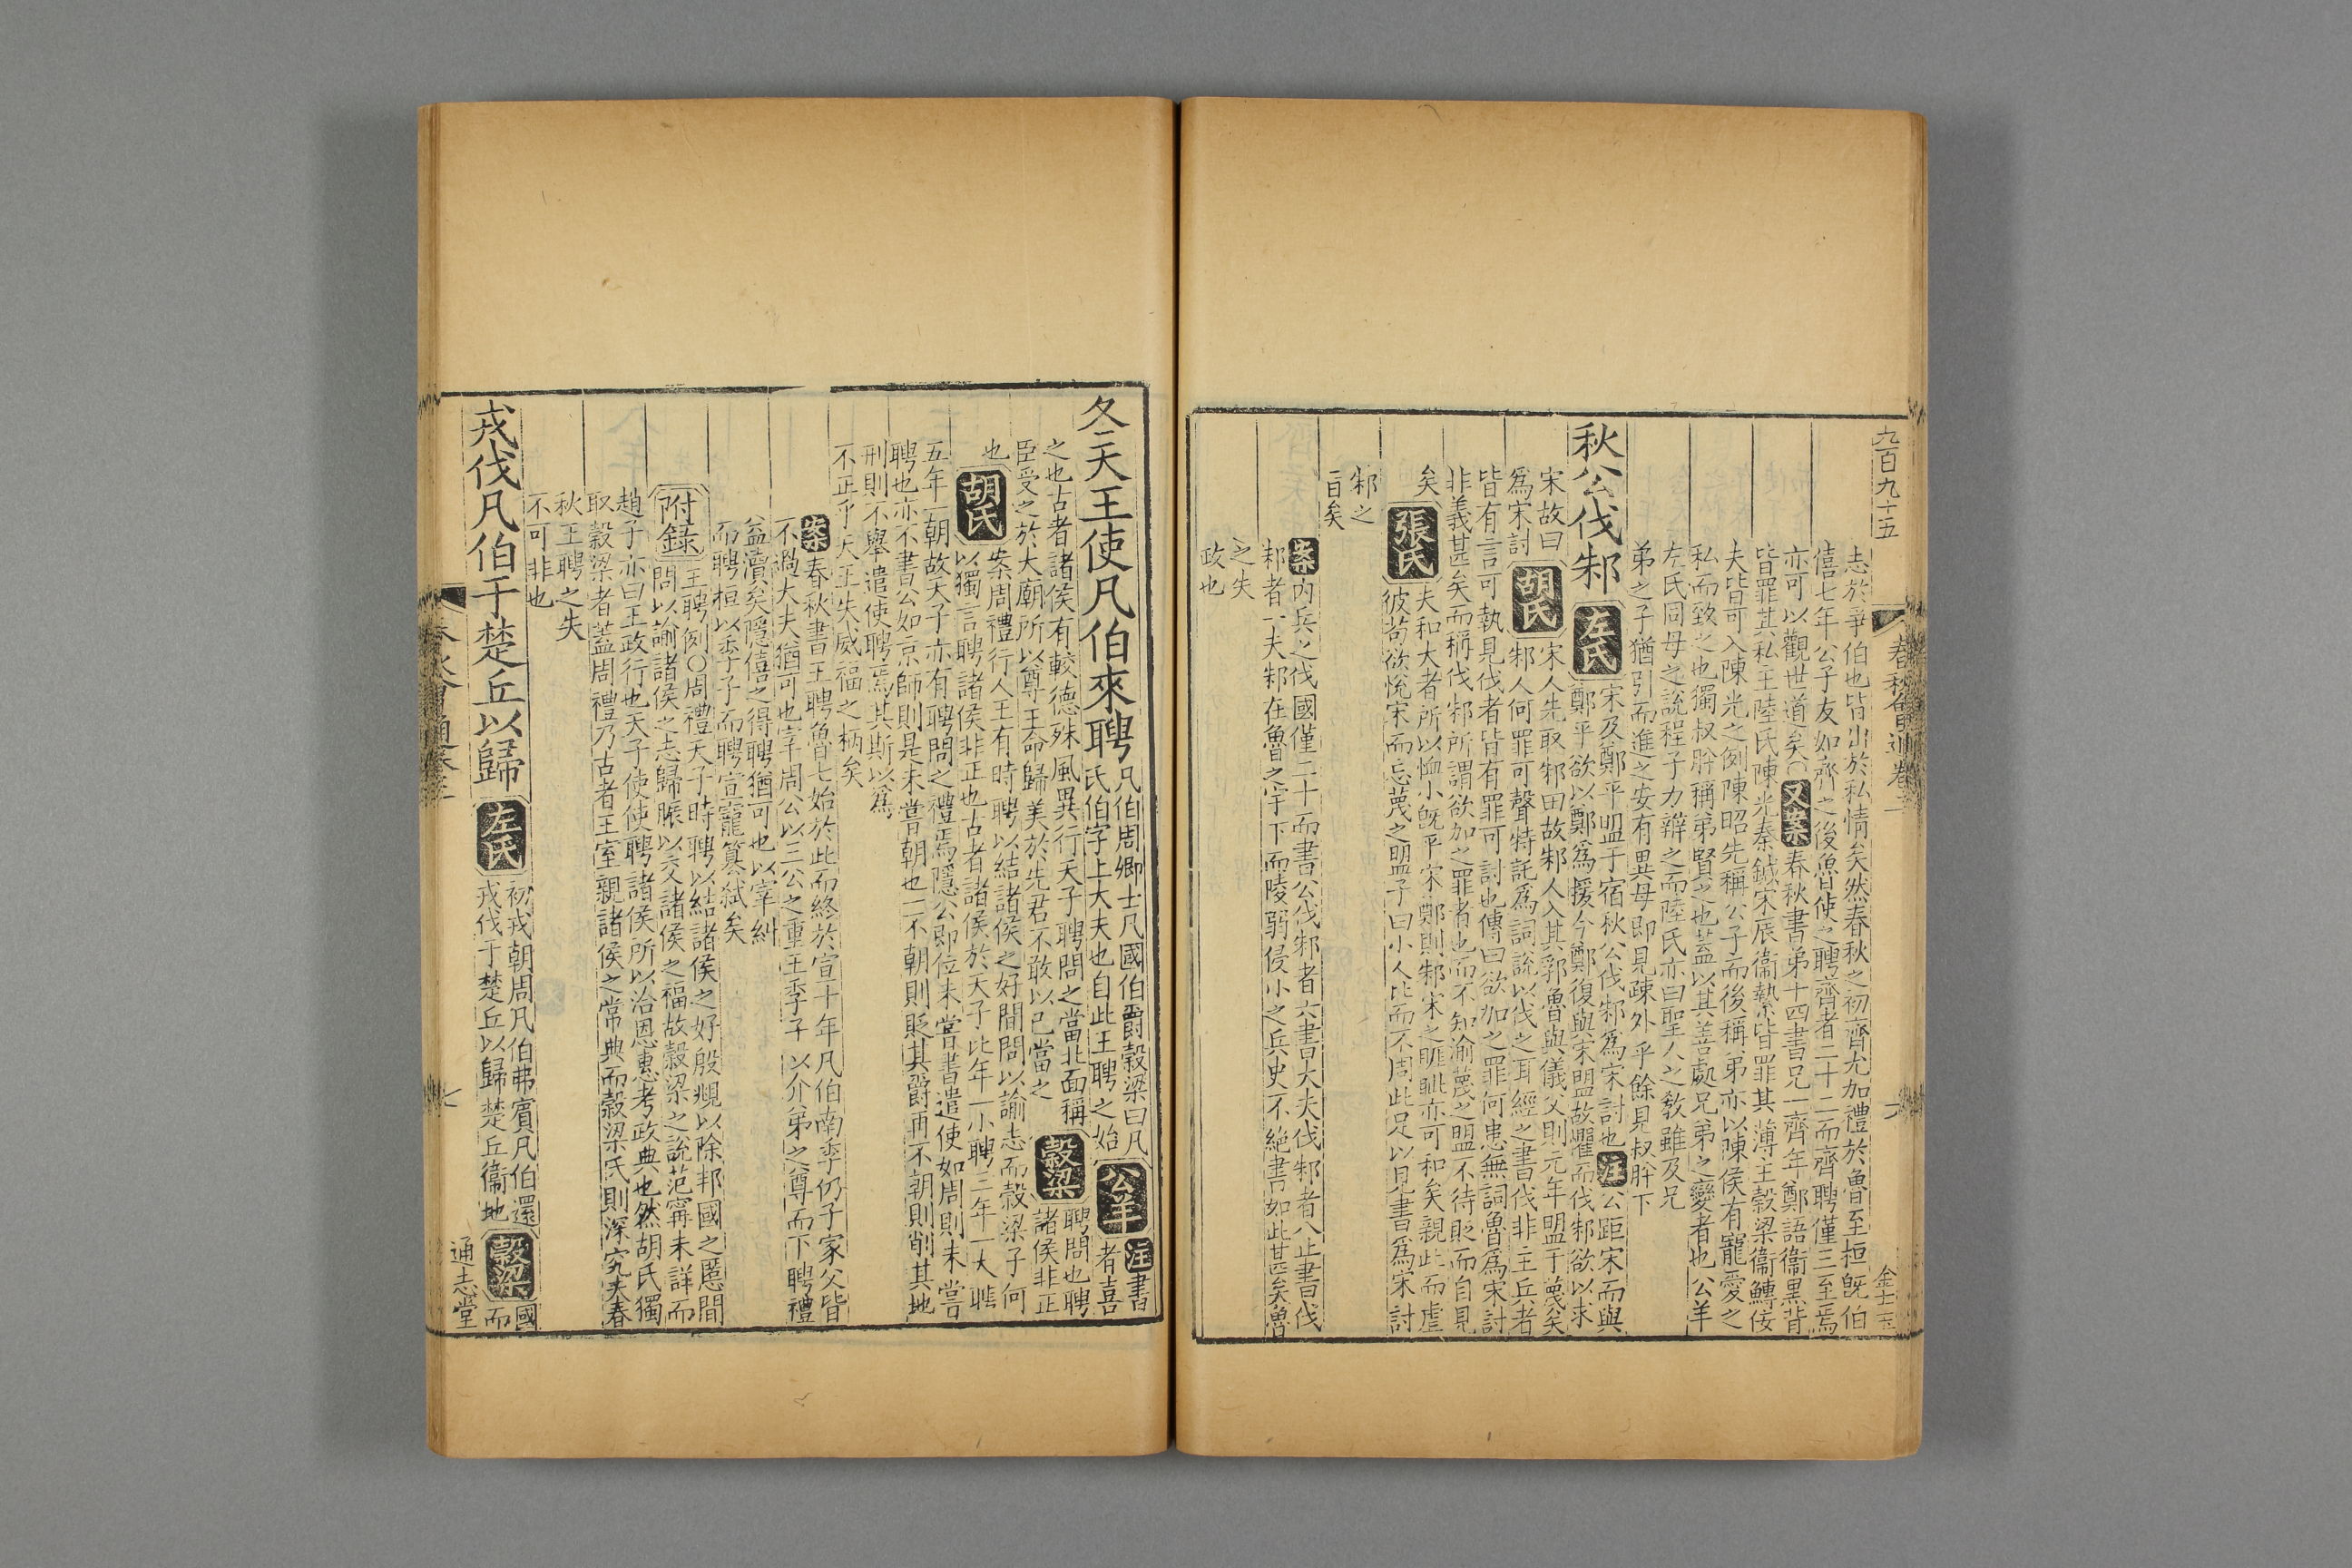 九百九十五
春秋會通卷三
六
金士玉
志於爭伯也皆出於私情矣然春秋之初齊尤加禮於魯至桓旣伯
僖七年公子友如齊之後魯使之聘齊者二十二而齊聘僅三至焉
亦可以觀世道矣○又案春秋書弟十四書兄一齊年鄭語衞黑背
皆罪其私王陸氏陳光秦鍼宋辰衞縶皆罪其薄主穀梁衞鱄侫
夫皆可入陳光之例陳昭先稱公子而後稱弟亦以陳侯有寵愛之
私而致之也獨叔肸稱弟賢之也蓋以其善處兄弟之變者也公羊
左氏同母之說程子力辨之而陸氏亦曰聖人之敎雖及兄
弟之子猶引而進之安有異母即見疎外乎餘見叔肸下
秋公伐邾 左氏 宋及鄭平盟于宿秋公伐邾爲宋討也 注 公距宋而與
鄭平欲以鄭爲援今鄭復與宋盟故懼而伐邾欲以求
宋故曰爲宋討 胡氏 宋人先取邾田故邾人入其郛魯與儀父則元年盟于蔑矣
邾人何罪可聲特託爲詞說以伐之耳經之書伐非主兵者
皆有言可執見伐者皆有罪可討也傳曰欲加之罪何患無詞魯爲宋討
非義甚矣而稱伐邾所謂欲加之罪者也而不知渝蔑之盟不待貶而自見
矣 張氏 夫和大者所以恤小旣平宋鄭則邾宋之睚眦亦可和矣親此而虐
彼苟欲悅宋而忘蔑之盟子曰小人比而不周此足以見書爲宋討
邾之
旨矣
案 內兵之伐國僅二十而書公伐邾者六書大夫伐邾者八止書伐
邾者一夫邾在魯之宇下而陵弱侵小之兵史不絶書如此甚矣魯
之失
政也
冬天王使凡伯來聘 凡伯周卿士凡國伯爵穀梁曰凡
氏伯字上大夫也自此王聘之始 公羊 注 書
者喜
之也古者諸侯有較德殊風異行天子聘問之當北面稱
臣受之於大廟所以尊王命歸美於先君不敢以己當之 穀梁 聘問也聘
諸侯非正
也 胡氏 案周禮行人王有時聘以結諸侯之好間問以諭志而穀梁子何
以獨言聘諸侯非正也古者諸侯於天子比年一小聘三年一大聘
五年一朝故天子亦有聘問之禮焉隱公即位未嘗書遣使如周則未嘗
聘也亦不書公如京師則是未嘗朝也一不朝則貶其爵再不朝則削其地
刑則不舉遣使聘焉其斯以爲
不正乎天王失威福之柄矣
案 春秋書王聘魯七始於此而終於宣十年凡伯南季仍子家父皆
不過大夫猶可也宰周公以三公之重王季子以介弟之尊而下聘禮
益瀆矣隱僖之得聘猶可也以宰糾
而聘桓以季子而聘宣寵簒弑矣
附錄 王聘例○周禮天子時聘以結諸侯之好殷覜以除邦國之慝間
問以諭諸侯之志歸脤以交諸侯之福故穀梁之說范寗未詳而
趙子亦曰王政行也天子使使聘諸侯所以洽恩惠考政典也然胡氏獨
取穀梁者蓋周禮乃古者王室親諸侯之常典而穀梁氏則深究夫春
秋王聘之失
不可非也
戎伐凡伯于楚丘以歸 左氏 初戎朝周凡伯弗賓凡伯還
戎伐于楚丘以歸楚丘衞地 穀梁 國
而
七
通志堂